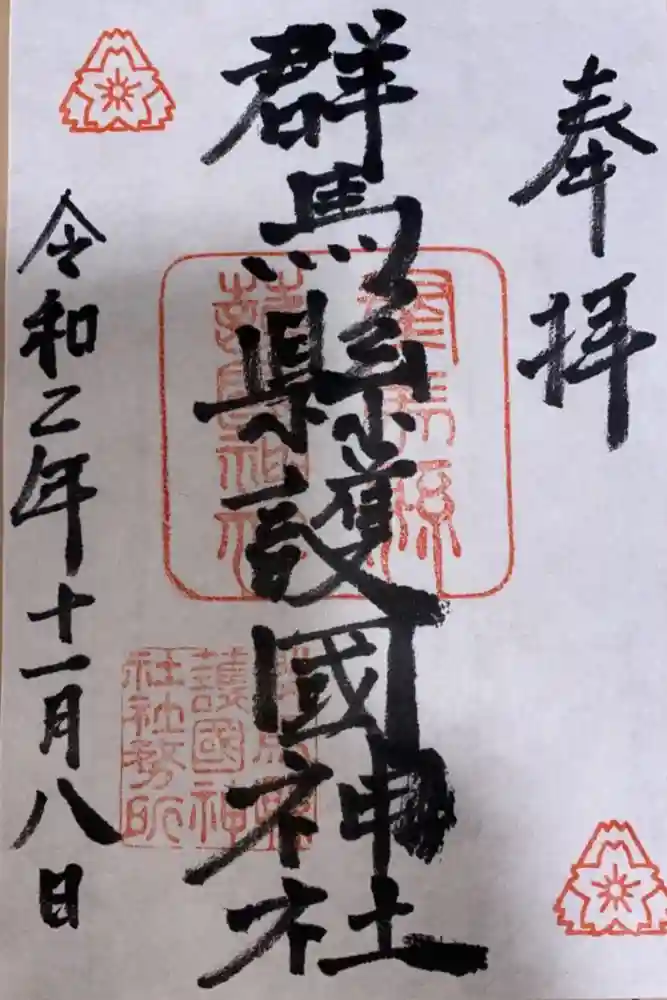 奉拝
群馬縣護國神社
群馬縣
護國神
社社務所
令和二年十一月八日